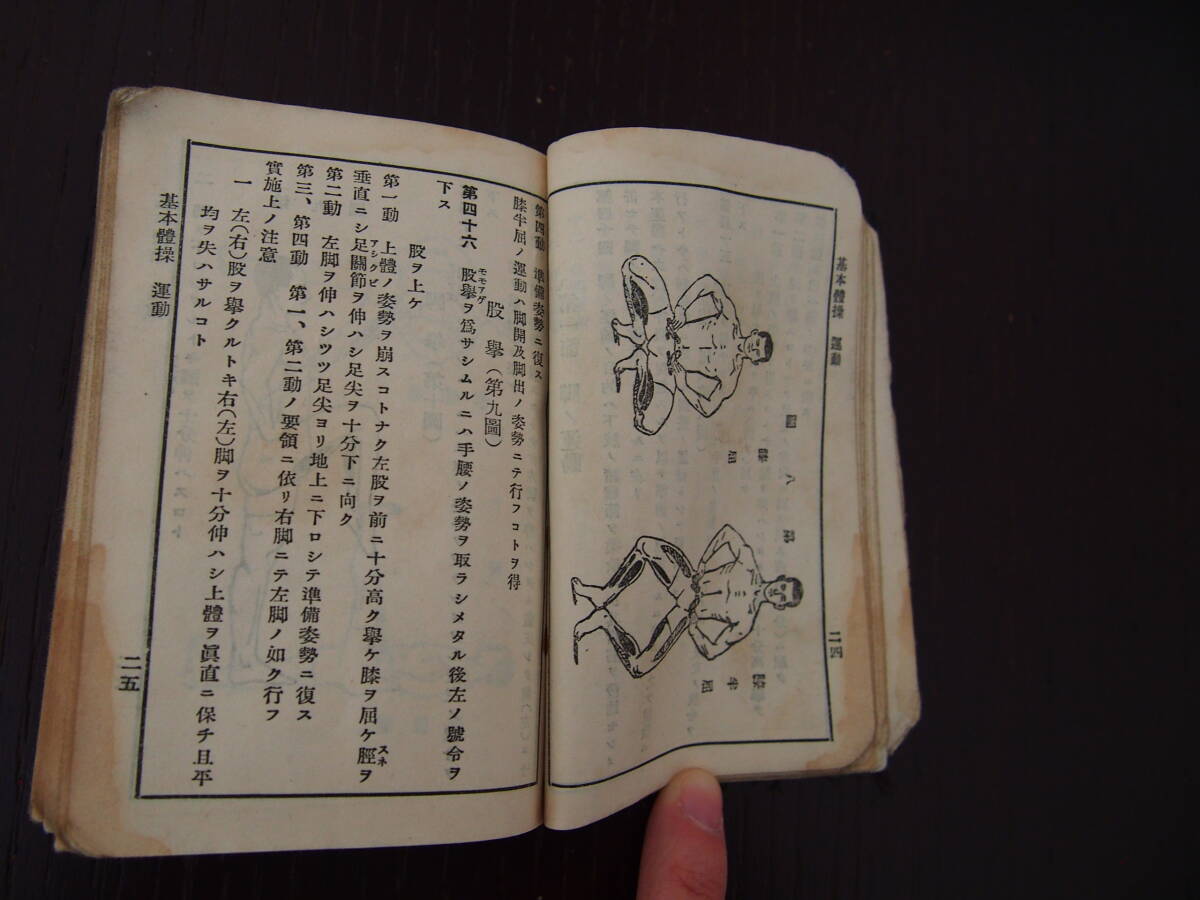 基本體操 運動
二四
第八圖
膝屈
膝半屈
第四動 準備姿勢ニ復ス
膝半屈ノ運動ハ脚開及脚出ノ姿勢ニテ行フコトヲ得
股擧(第九圖)
モモアゲ
第四十六 股擧ヲ爲サシムルニハ手腰ノ姿勢ヲ取ラシメタル後左ノ號令ヲ
下ス
股ヲ上ケ
第一動 上體ノ姿勢ヲ崩スコトナク左股ヲ前ニ十分高ク擧ケ膝ヲ屈ケ脛ヲ
スネ
アシクビ
垂直ニシ足關節ヲ伸ハシ足尖ヲ十分下ニ向ク
第二動 左脚ヲ伸ハシツツ足尖ヨリ地上ニ下ロシテ準備姿勢ニ復ス
第三、第四動 第一、第二動ノ要領ニ依リ右脚ニテ左脚ノ如ク行フ
實施上ノ注意
一 左(右)股ヲ擧クルトキ右(左)脚ヲ十分伸ハシ上體ヲ眞直ニ保チ且平
均ヲ失ハサルコト
基本體操 運動
二五